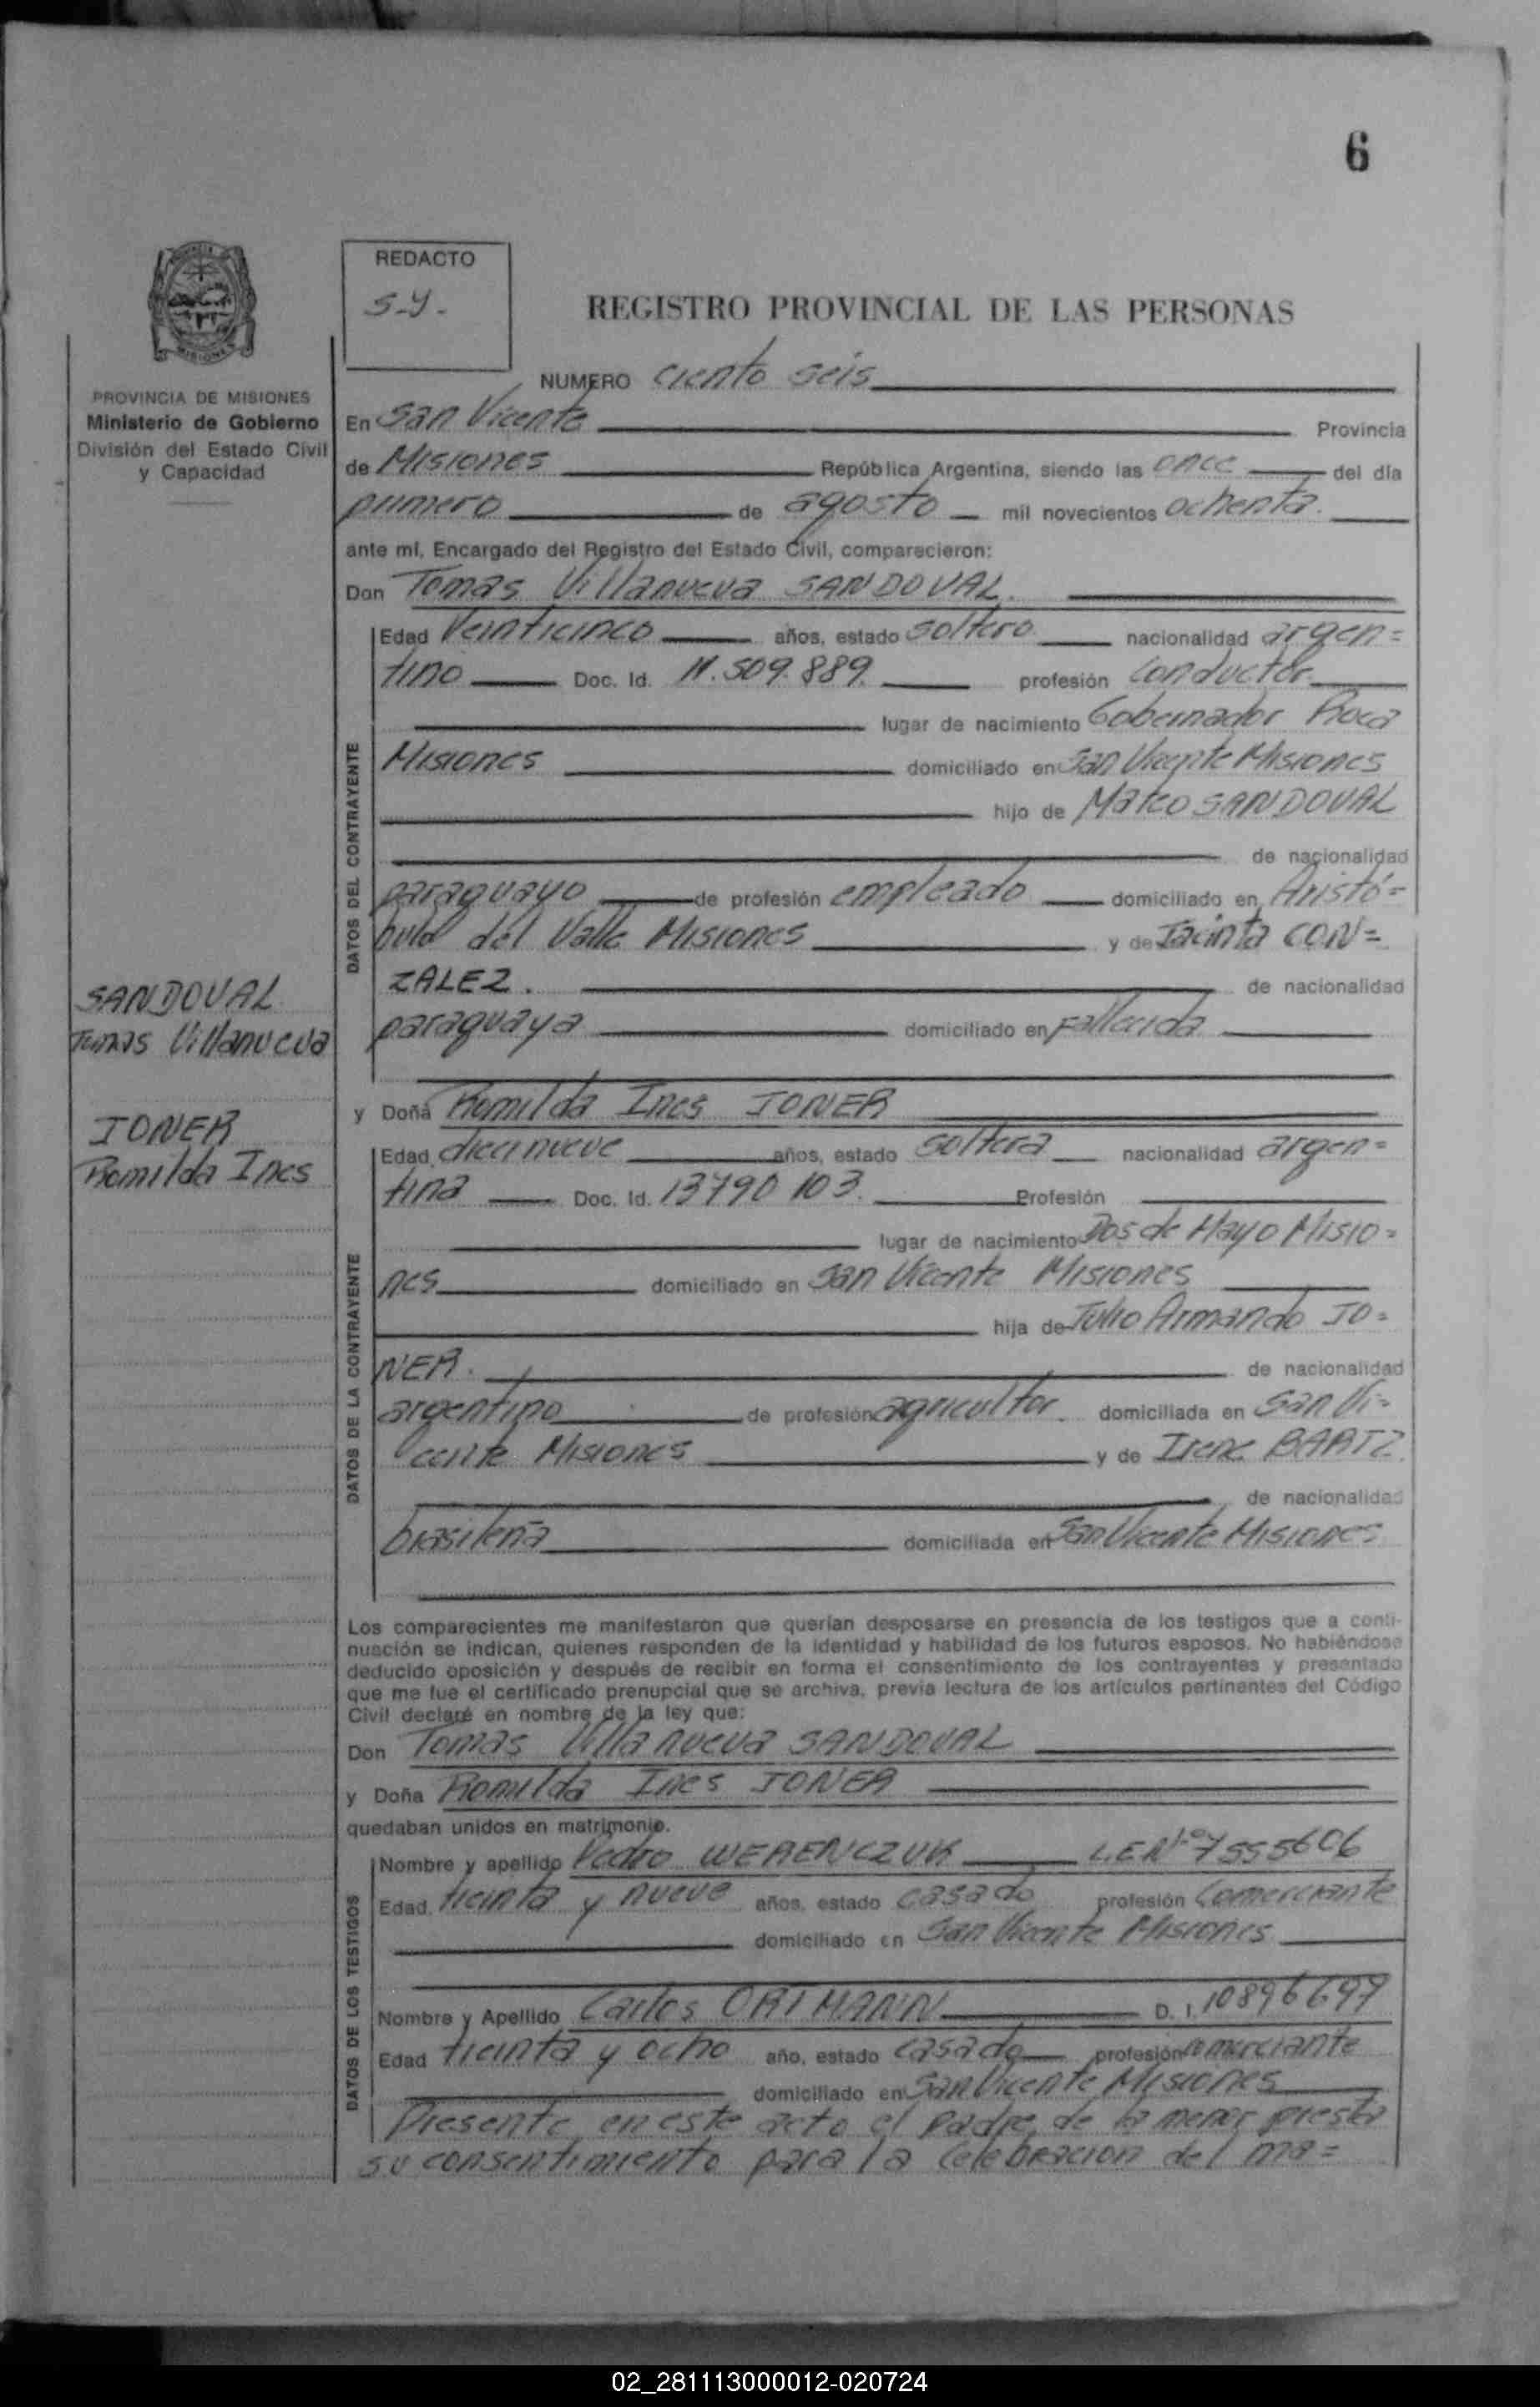 6
REDACTO
S.Y.
REGISTRO PROVINCIAL DE LAS PERSONAS
PROVINCIA DE MISIONES
Ministerio de Gobierno
División del Estado Civil
y Capacidad
NUMERO ciento seis
En San Vicente Provincia
de Misiones República Argentina, siendo las once del día
primero de agosto mil novecientos ochenta.
ante mí, Encargado del Registro del Estado Civil, comparecieron:
Don Tomas Villanueva SANDOVAL.
DATOS DEL CONTRAYENTE
Edad Veinticinco años, estado soltero nacionalidad argen=
tino Doc. Id. 11.509.889. profesión conductor
lugar de nacimiento Gobernador Roca
Misiones domiciliado en San Vicente Misiones
hijo de Mateo SANDOVAL
de nacionalidad
paraguayo de profesión empleado domiciliado en Aristó=
bulo del Valle Misiones y de Jacinta CON=
ZALEZ. de nacionalidad
paraguaya domiciliado en Fallecida
SANDOVAL
Tomas Villanueva
JONER
Romilda Ines
y Doña Romilda Ines JONER
DATOS DE LA CONTRAYENTE
Edad diecinueve años, estado soltera nacionalidad argen=
tina Doc. Id. 13790 103. Profesión
lugar de nacimiento Dos de Mayo Misio=
nes domiciliado en San Vicente Misiones
hija de Julio Armando JO=
NER. de nacionalidad
argentino de profesión agricultor domiciliada en San Vi=
cente Misiones y de Irene BARTZ.
de nacionalidad
brasileña domiciliada en San Vicente Misiones
Los comparecientes me manifestaron que querían desposarse en presencia de los testigos que a conti-
nuación se indican, quienes responden de la identidad y habilidad de los futuros esposos. No habiéndose
deducido oposición y después de recibir en forma el consentimiento de los contrayentes y presentado
que me fue el certificado prenupcial que se archiva, previa lectura de los artículos pertinentes del Código
Civil declaré en nombre de la ley que:
Don Tomas Villanueva SANDOVAL
y Doña Romilda Ines JONER
quedaban unidos en matrimonio.
DATOS DE LOS TESTIGOS
Nombre y apellido Pedro WERENCZUK LEN° 7555606
Edad, treinta y nueve años, estado casado profesión Comerciante
domiciliado en San Vicente Misiones
Nombre y Apellido Carlos ORTMANN D. I. 10896697
Edad treinta y ocho año, estado casado profesión comerciante
domiciliado en San Vicente Misiones
Presente en este acto el padre de la menor presta
su consentimiento para la celebracion del ma=
02_281113000012-020724